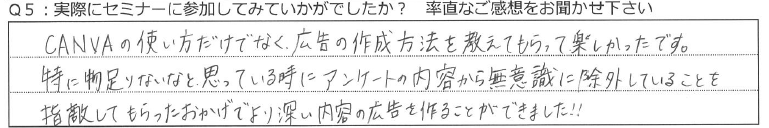 Q5：実際にセミナーに参加してみていかがでしたか？　率直なご感想をお聞かせ下さい
CANVAの使い方だけでなく、広告の作成方法を教えてもらって楽しかったです。
特に物足りないなと思っている時にアンケートの内容から無意識に除外していることを
指敵してもらったおかげでより深い内容の広告を作ることができました!!